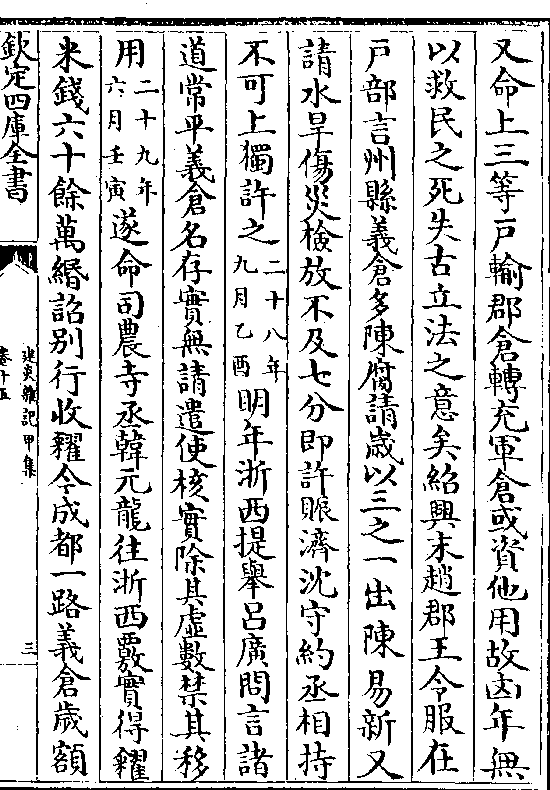 又命上三等戶輸郡倉轉充軍倉或資他用故凶年無
以救民之死失古立法之意矣紹興末趙郡王令𫍯在
戶部言州縣義倉多陳腐請歲以三之一出陳易新又
請水旱傷災檢放不及七分即許賑濟沈守約丞相持
不可上獨許之二十八年九月乙酉明年浙西提舉呂廣問言諸
道常平義倉名存實無請遣使核實除其虛數禁其移
用二十九年六月壬寅遂命司農寺丞韓元龍往浙西覈實得糴
米錢六十餘萬緡詔別行收糴今成都一路義倉歲額
欽定四庫全書
建炎雜記甲集
卷十五
三